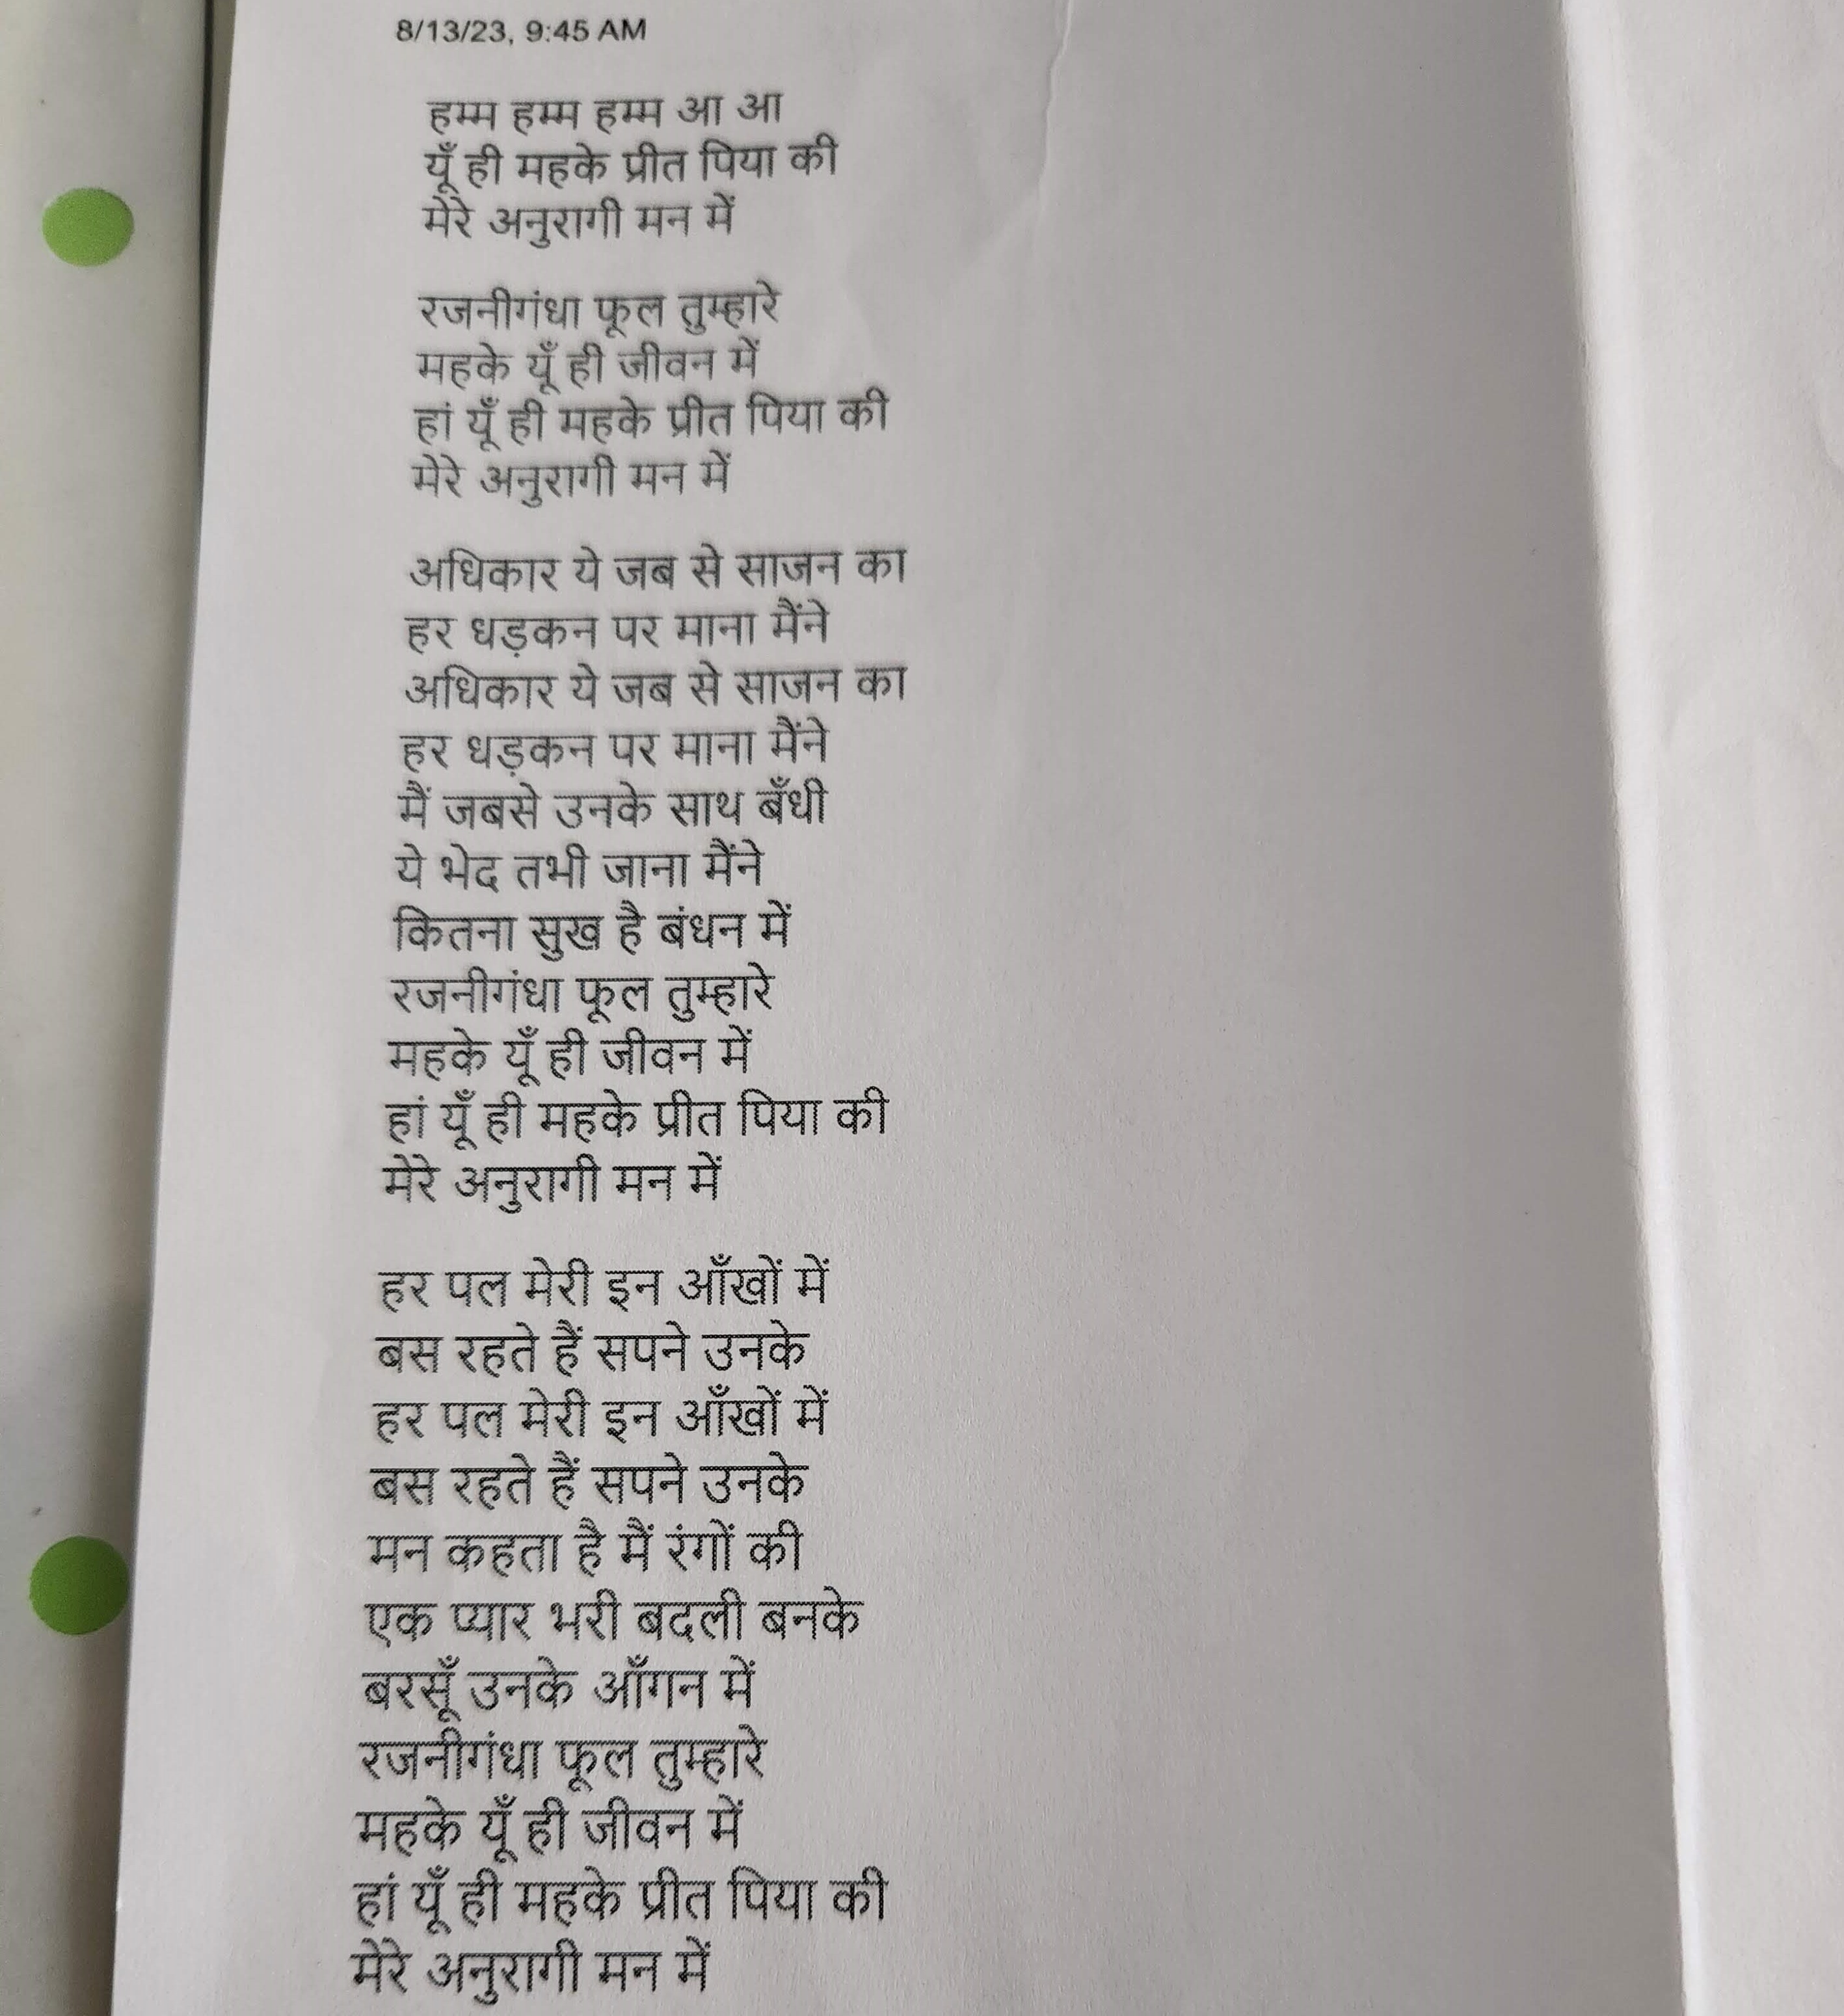 8/13/23, 9:45 AM
हम्म हम्म हम्म आ आ
यूँ ही महके प्रीत पिया की
मेरे अनुरागी मन में
रजनीगंधा फूल तुम्हारे
महके यूँ ही जीवन में
हां यूँ ही महके प्रीत पिया की
मेरे अनुरागी मन में
अधिकार ये जब से साजन का
हर धड़कन पर माना मैंने
अधिकार ये जब से साजन का
हर धड़कन पर माना मैंने
मैं जबसे उनके साथ बँधी
ये भेद तभी जाना मैंने
कितना सुख है बंधन में
रजनीगंधा फूल तुम्हारे
महके यूँ ही जीवन में
हां यूँ ही महके प्रीत पिया की
मेरे अनुरागी मन में
हर पल मेरी इन आँखों में
बस रहते हैं सपने उनके
हर पल मेरी इन आँखों में
बस रहते हैं सपने उनके
मन कहता है मैं रंगों की
एक प्यार भरी बदली बनके
बरसूँ उनके आँगन में
रजनीगंधा फूल तुम्हारे
महके यूँ ही जीवन में
हां यूँ ही महके प्रीत पिया की
मेरे अनुरागी मन में